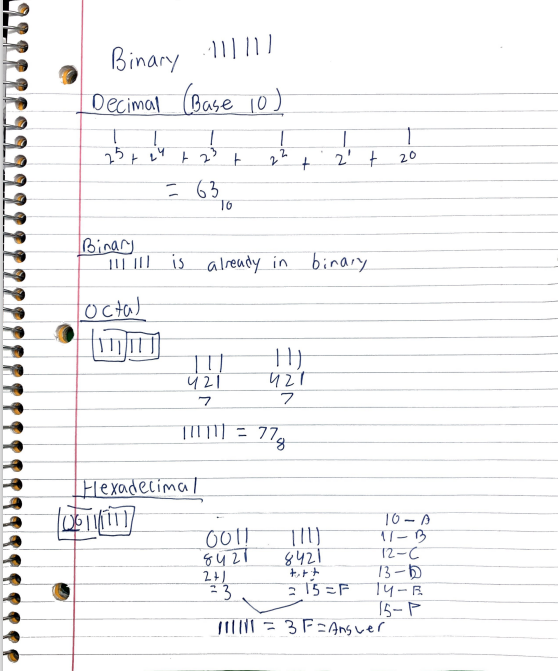 Binary 111111
Decimal (Base 10)
1 1 1 1 1 1
2⁵ + 2⁴ + 2³ + 2² + 2¹ + 2⁰
= 63₁₀
Binary
111 111 is already in binary
Octal
111 111
111 111
421 421
7 7
111111 = 77₈
Hexadecimal
0011 1111
0011 1111
8421 8421
2+1 +++
=3 = 15 = F
10-A
11-B
12-C
13-D
14-E
15-F
111111 = 3F = Answer